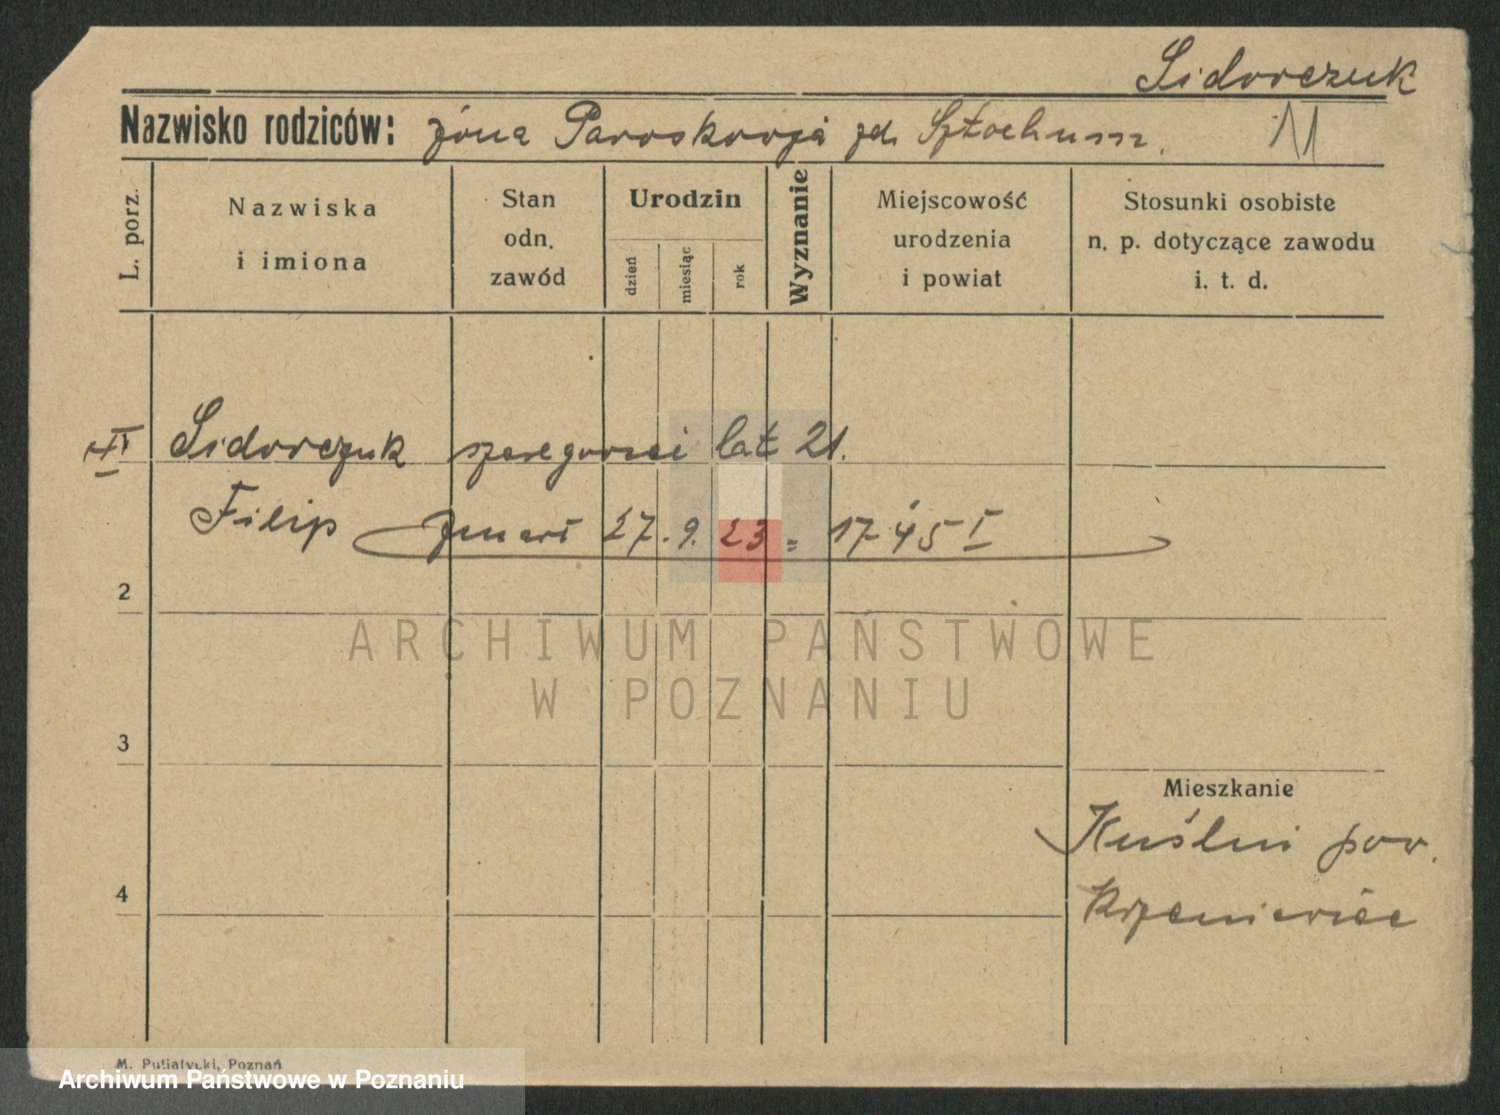 Sidorczuk
Nazwisko rodziców: żona Paroskowja zd. Sztochum. M
L. porz.
Nazwiska
i imiona
Stan
odn.
zawód
Urodzin
dzień
miesiąc
rok
Wyznanie
Miejscowość
urodzenia
i powiat
Stosunki osobiste
n. p. dotyczące zawodu
i. t. d.
II Sidorczuk szeregowiec lat 21.
Filip zmarł 27. 9. 23 = 1745 I
2
ARCHIWUM PAŃSTWOWE
W POZNANIU
3
Mieszkanie
Kuślin pow.
4
Krzemieniec
M. Putiatycki, Poznań
Archiwum Państwowe w Poznaniu